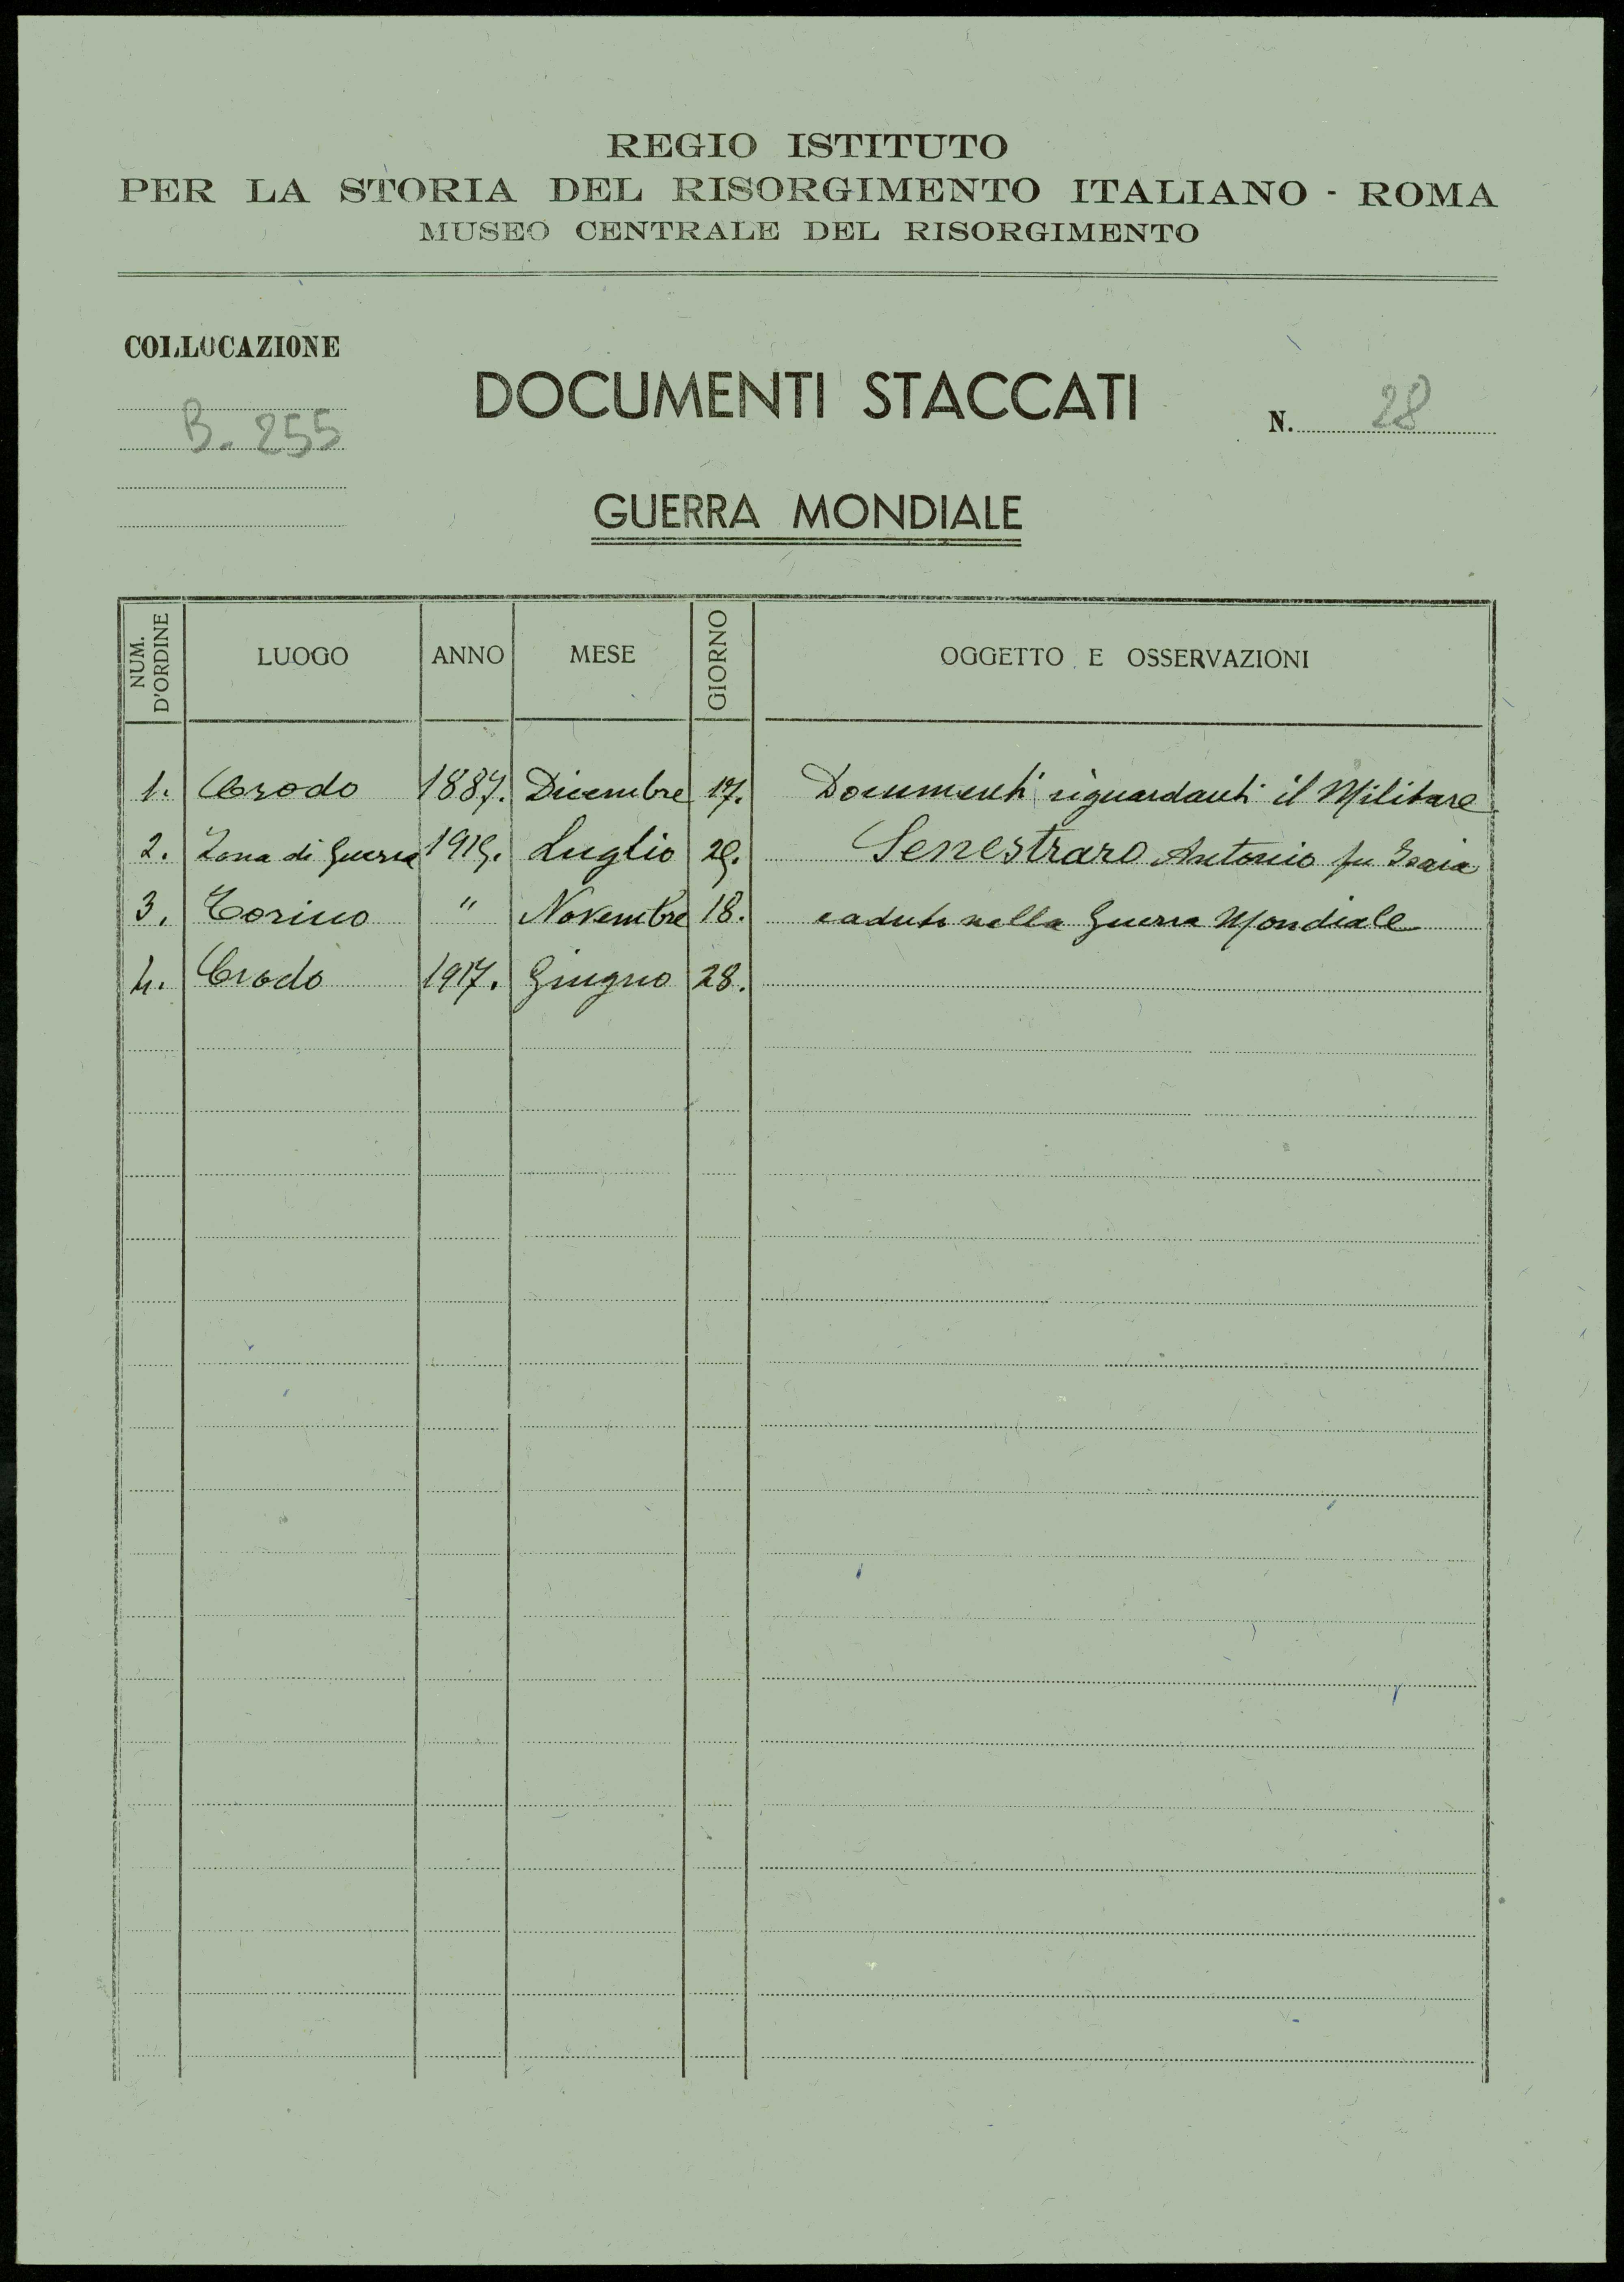 REGIO ISTITUTO
PER LA STORIA DEL RISORGIMENTO ITALIANO - ROMA
MUSEO CENTRALE DEL RISORGIMENTO
COLLOCAZIONE
B. 255
DOCUMENTI STACCATI
N. 28
GUERRA MONDIALE
NUM. D'ORDINE LUOGO ANNO MESE GIORNO OGGETTO E OSSERVAZIONI
1. Crodo 1887. Dicembre 17. Documenti riguardanti il Militare
2. Zona di Guerra Luglio Senestraro Antonio fu
3. Torino " Novembre 18. caduto nella Guerra Mondiale
4. Crodo 1917. Giugno 28.